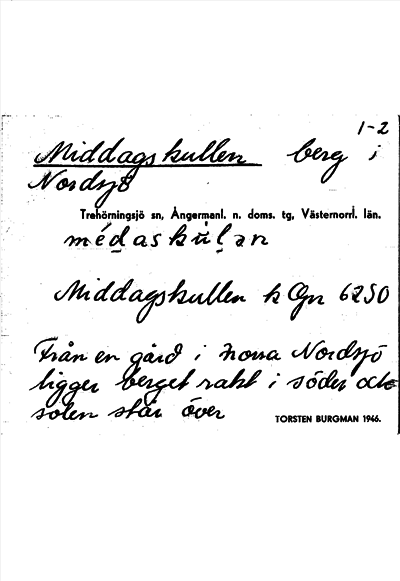 1-2
Middagskullen berg i
Nordsjö
Trehörningsjö sn, Ångermanl. n. doms. tg, Västernorrl. län.
médaskùlan
Middagskullen k Gn 6250
Från en gård i norra Nordsjö
ligger berget rakt i söder och
solen står över
TORSTEN BURGMAN 1946.